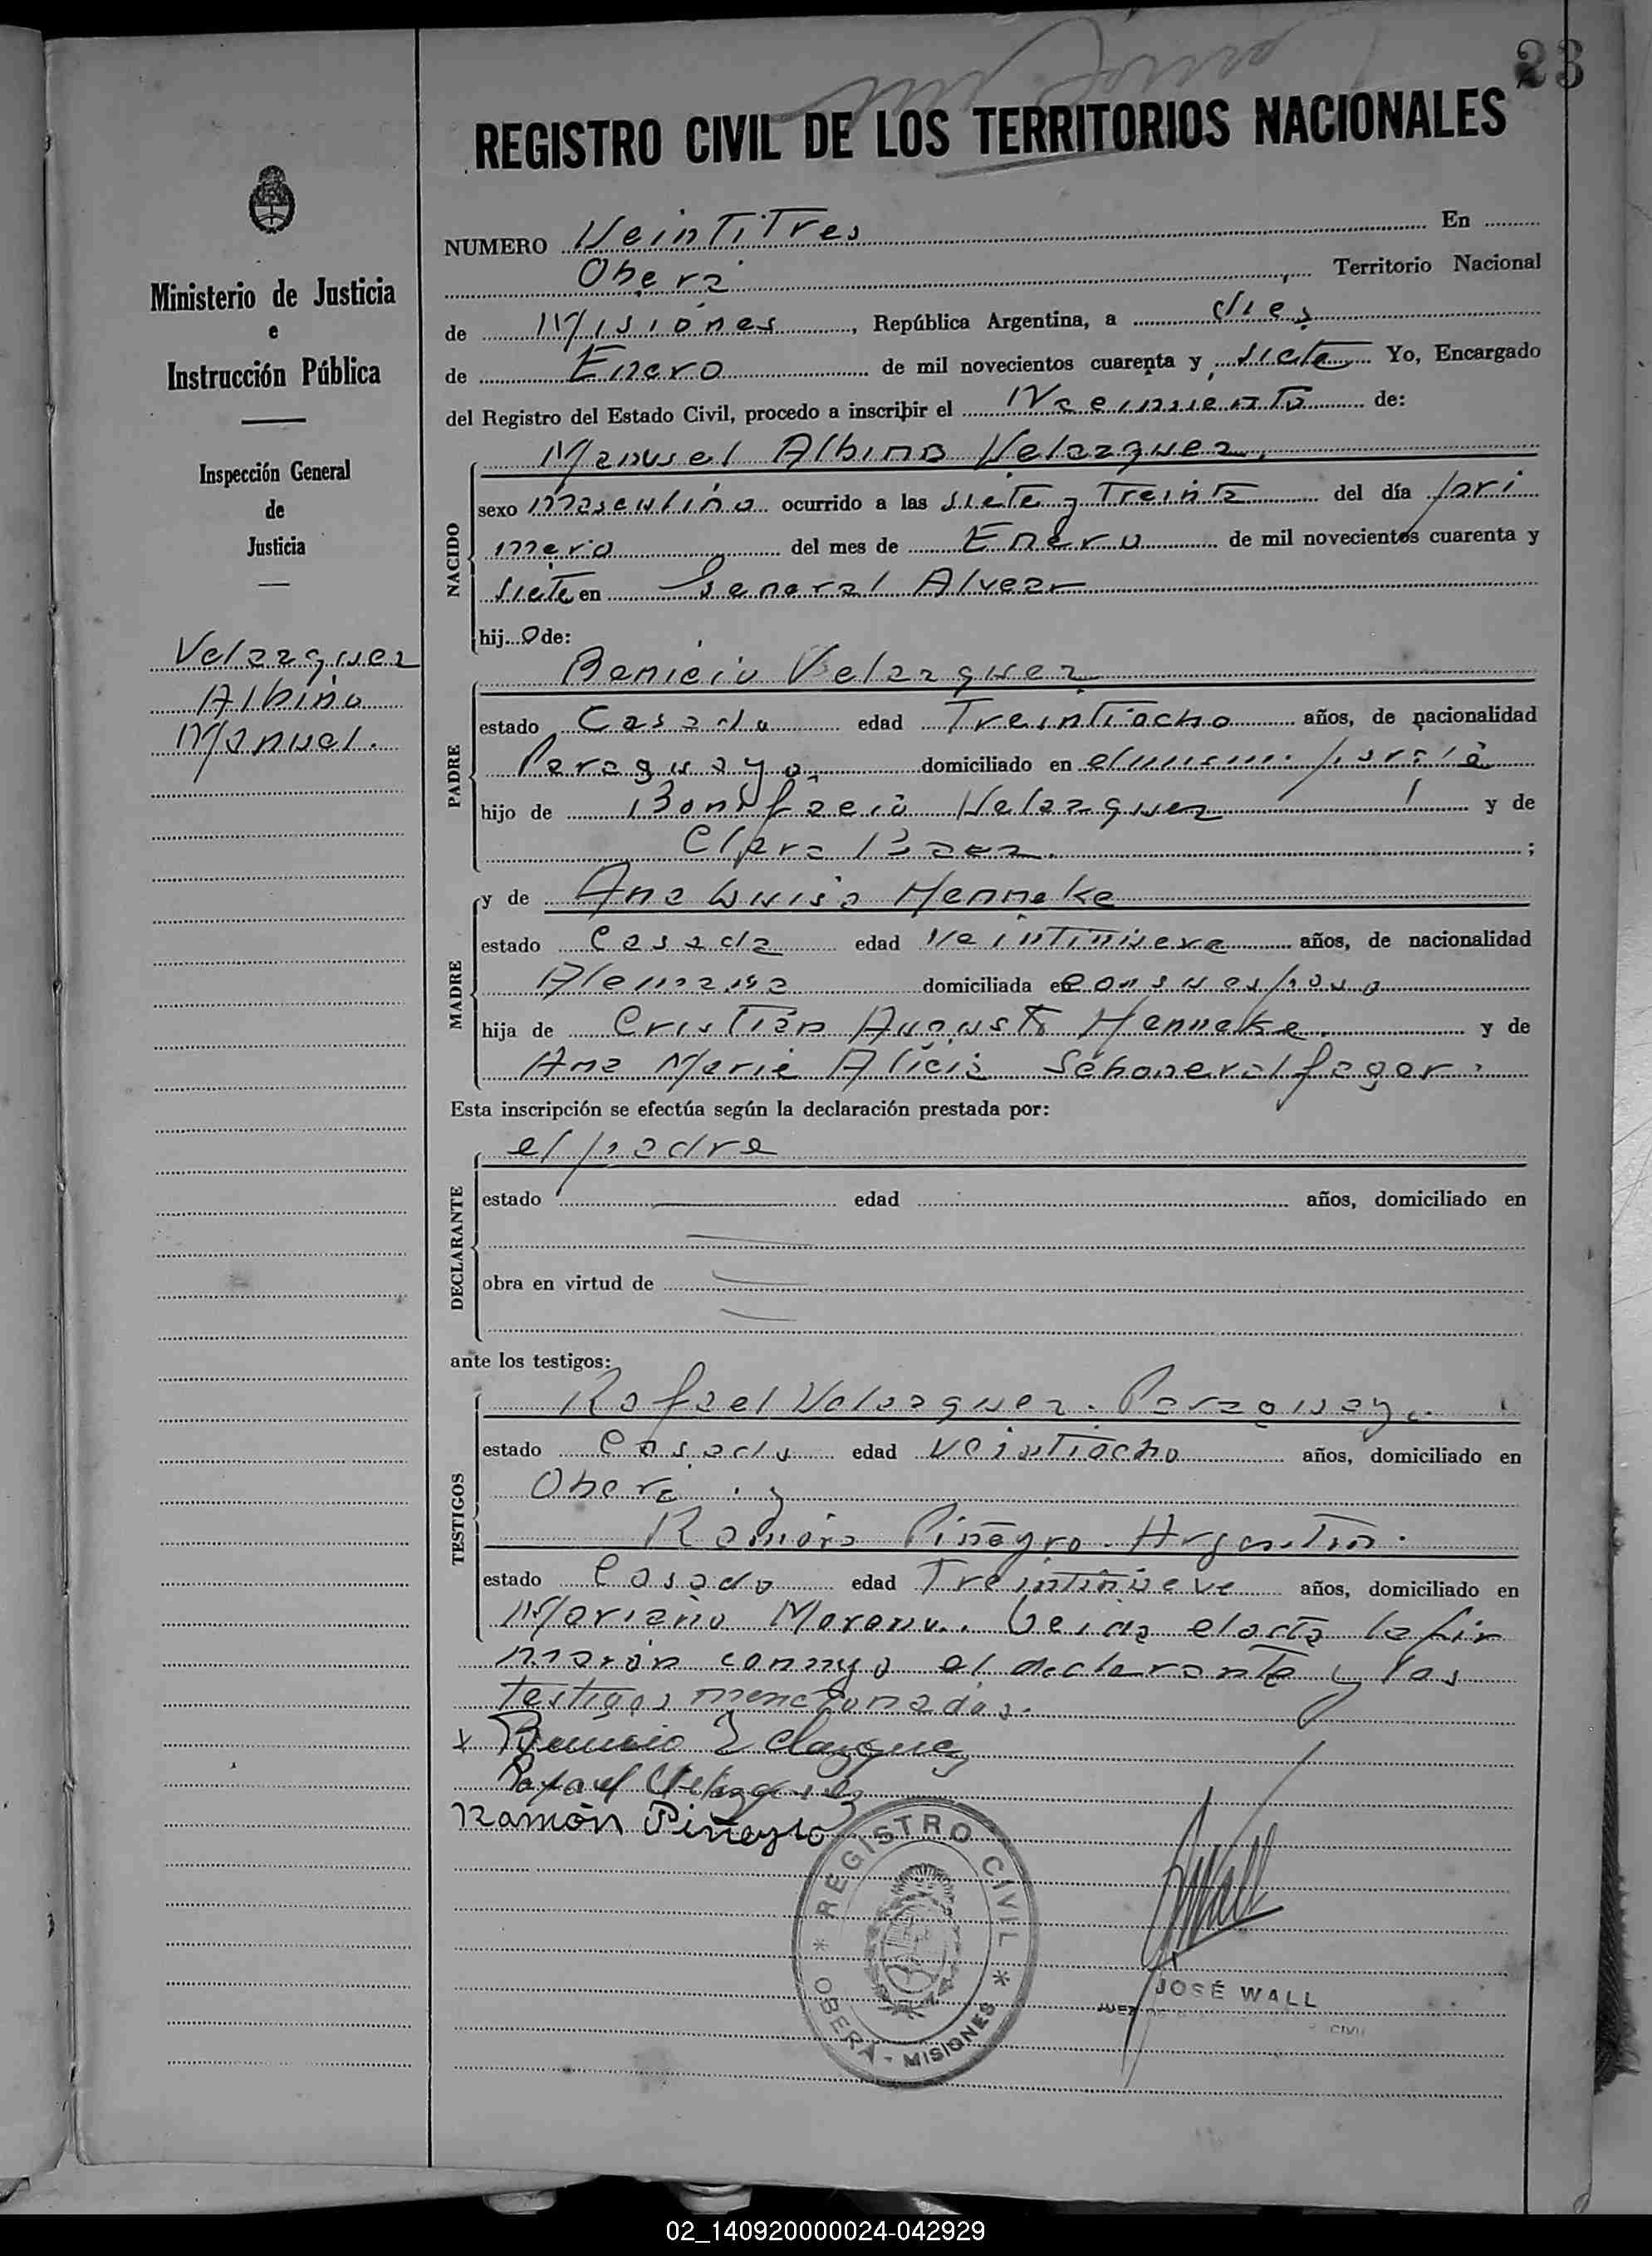 23
REGISTRO CIVIL DE LOS TERRITORIOS NACIONALES
NUMERO Veintitres En
Oberá, Territorio Nacional
de Misiones, República Argentina, a dies
de Enero de mil novecientos cuarenta y siete Yo, Encargado
del Registro del Estado Civil, procedo a inscribir el Nacimiento de:
Ministerio de Justicia
e
Instrucción Pública
Inspección General
de
Justicia
Velazquez
Albino
Manuel.
NACIDO
Manuel Albino Velazquez,
sexo masculino ocurrido a las siete y Treinta del día pri
mero del mes de Enero de mil novecientos cuarenta y
siete en General Alvear
hijo de:
PADRE
Benicio Velazquez
estado Casado edad Treintiocho años, de nacionalidad
Paraguayo, domiciliado en el mismo paraje
hijo de Bonifacio Velazquez y de
Clara Baez. ;
MADRE
y de Ana Luisa Henneke
estado Casada edad Veintinueve años, de nacionalidad
Alemana domiciliada en con su esposo
hija de Cristian Augusto Henneke y de
Ana Maria Alicia
Esta inscripción se efectúa según la declaración prestada por:
DECLARANTE
el padre
estado edad años, domiciliado en
obra en virtud de
ante los testigos:
TESTIGOS
Rafael Velazquez. Paraguayo
estado Casado edad Veintiocho años, domiciliado en
Oberá y
Ramón Piñeyro. Argentino.
estado Casado edad Treintinueve años, domiciliado en
Mariano Moreno. Leida el acta la fir
maron conmigo el declarante y los
testigos mencionados.
x Benicio Velazquez
Rafael Velazquez
Ramón Piñeyro
REGISTRO CIVIL
* OBERÁ - MISIONES *
JWall
JOSÉ WALL
JUEZ
CIVIL
02_140920000024-042929